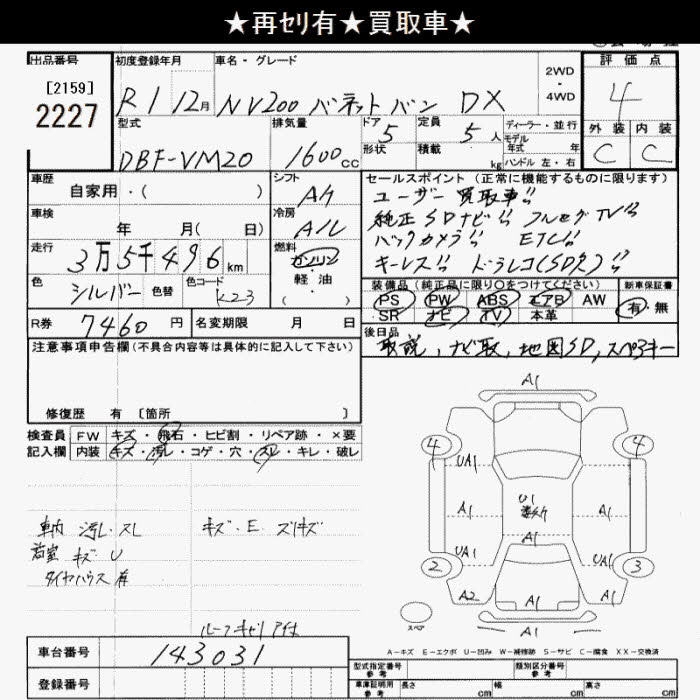 ★再ｾﾘ有★買取車★
出品番号 初度登録年月 車名・グレード 2WD ・ 4WD 評価点
[2159]
2227
R1 12月 NV200 バネットバン DX 4
型式 排気量 ドア 定員 ディーラー・並行 外装 内装
DBF-VM20 1600cc 5 5人 モデル年式 年 C C
形状 積載 kg ハンドル 左・右
車歴 シフト セールスポイント (正常に機能するものに限ります)
自家用・( ) AT ユーザー買取車!!
車検 冷房 純正SDナビ!! フルセグTV!!
年 月( 日) A/C バックカメラ!! ETC!!
走行 3万5千496km 燃料 ガソリン キーレス!! ドラレコ(SD欠)!!
軽油
( )
色 シルバー 色替 色コード K23 装備品 (純正品に限り○をつけてください) 新車保証書
PS PW ABS エアB AW 有・無
SR ナビ TV 本革
R券 7460円 名変期限 月 日 後日品
取説, ナビ取, 地図SD, スペアキー
注意事項申告欄 (不具合内容等は具体的に記入して下さい)
修復歴 有 〔箇所 〕
検査員記入欄 FW キズ・飛石・ヒビ割・リペア跡・×要
内装 キズ・汚レ・コゲ・穴・スレ・キレ・破レ
車内 汚レ・スレ キズ・E ズリキズ
荷室 キズ U
タイヤハウス 有
A1
4 4
UA1
A1 U1 A1
A1
UA1 UA1
2 3
A2 A1 A1
スペア A1
A-キズ E-エクボ U-凹み W-補修跡 S-サビ C-腐食 XX-交換済
車台番号 143031
登録番号
型式指定番号 参考 類別区分番号 参考
車庫証明用 参考 長さ cm 幅 cm 高さ cm